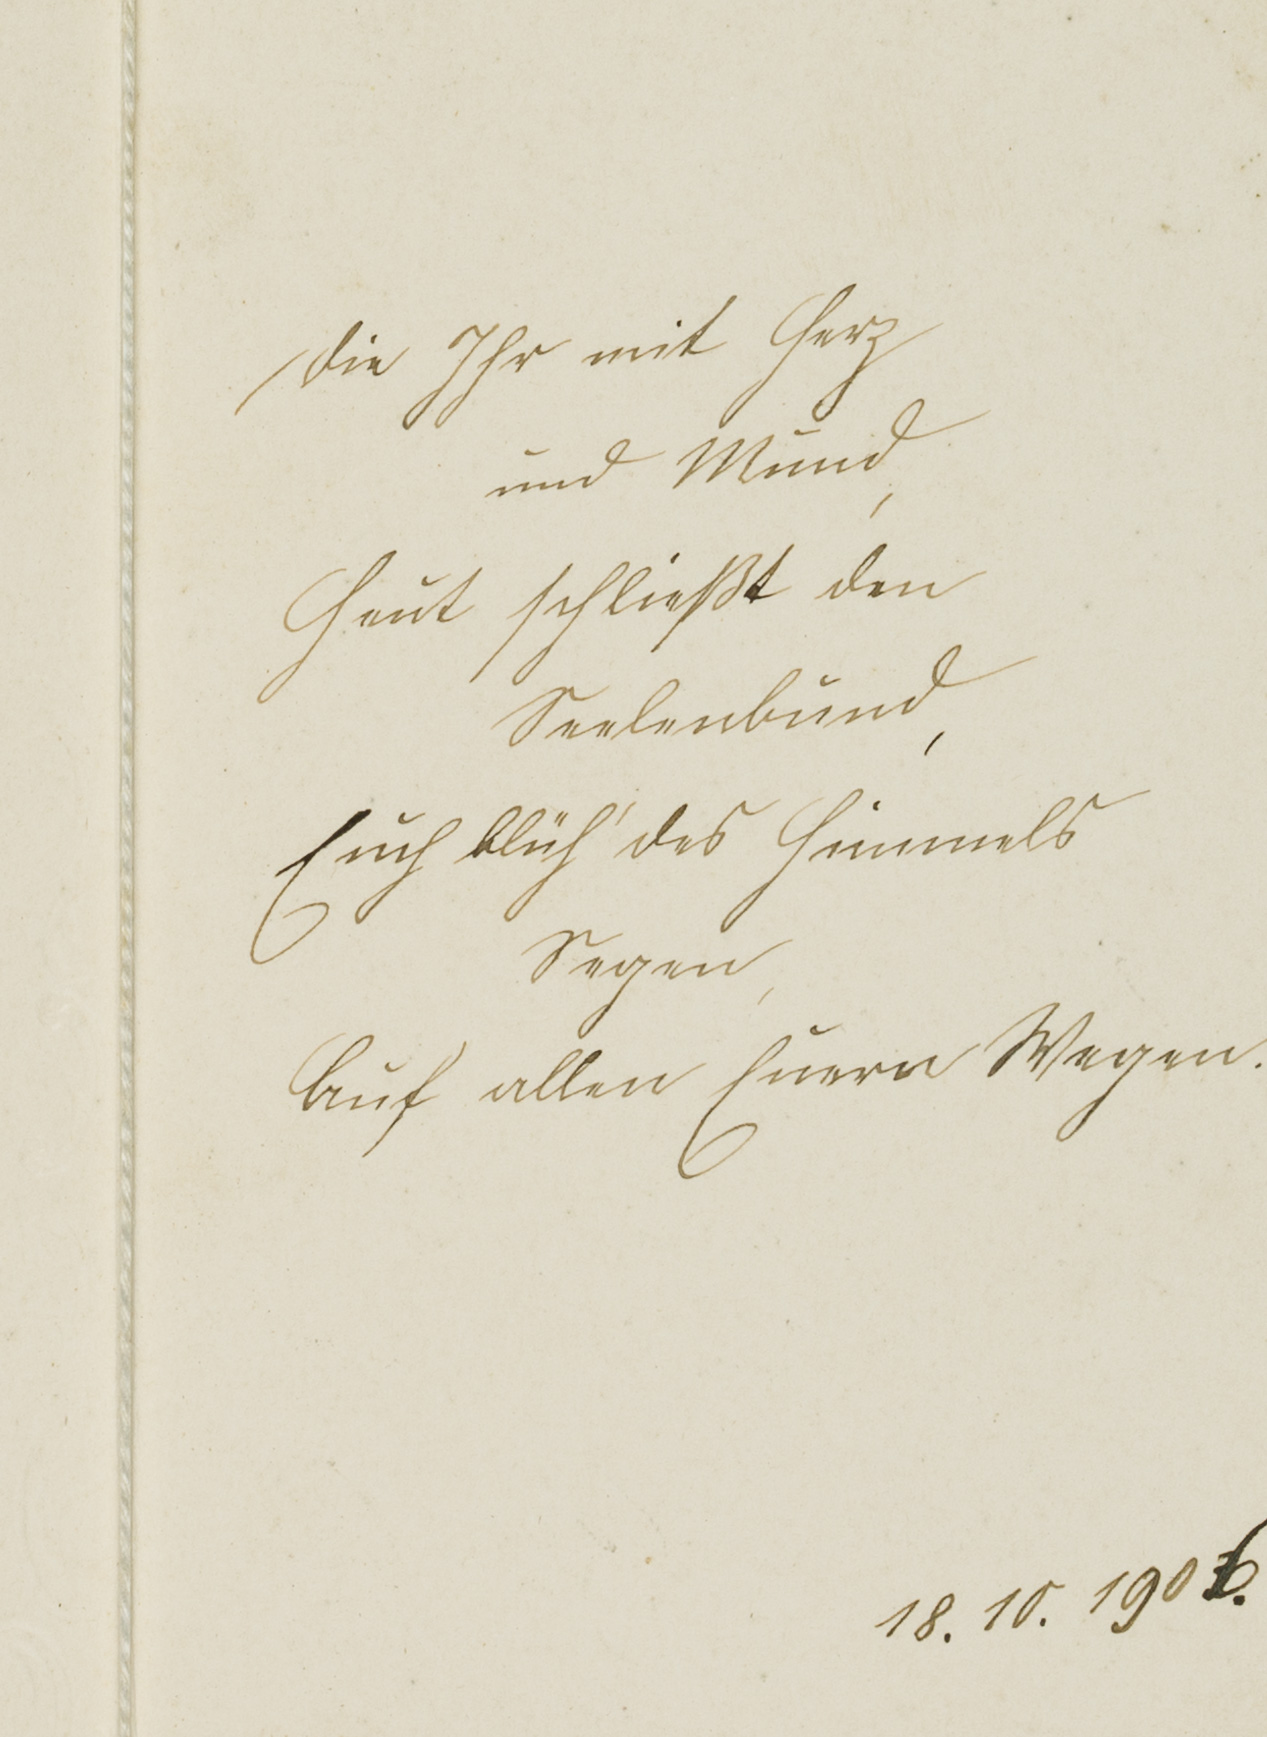 Die Ihr mit Herz
und Mund,
Heut schließt den
Seelenbund,
Euch blüh' des Himmels
Segen,
Auf allen Euern Wegen.
18. 10. 1906.